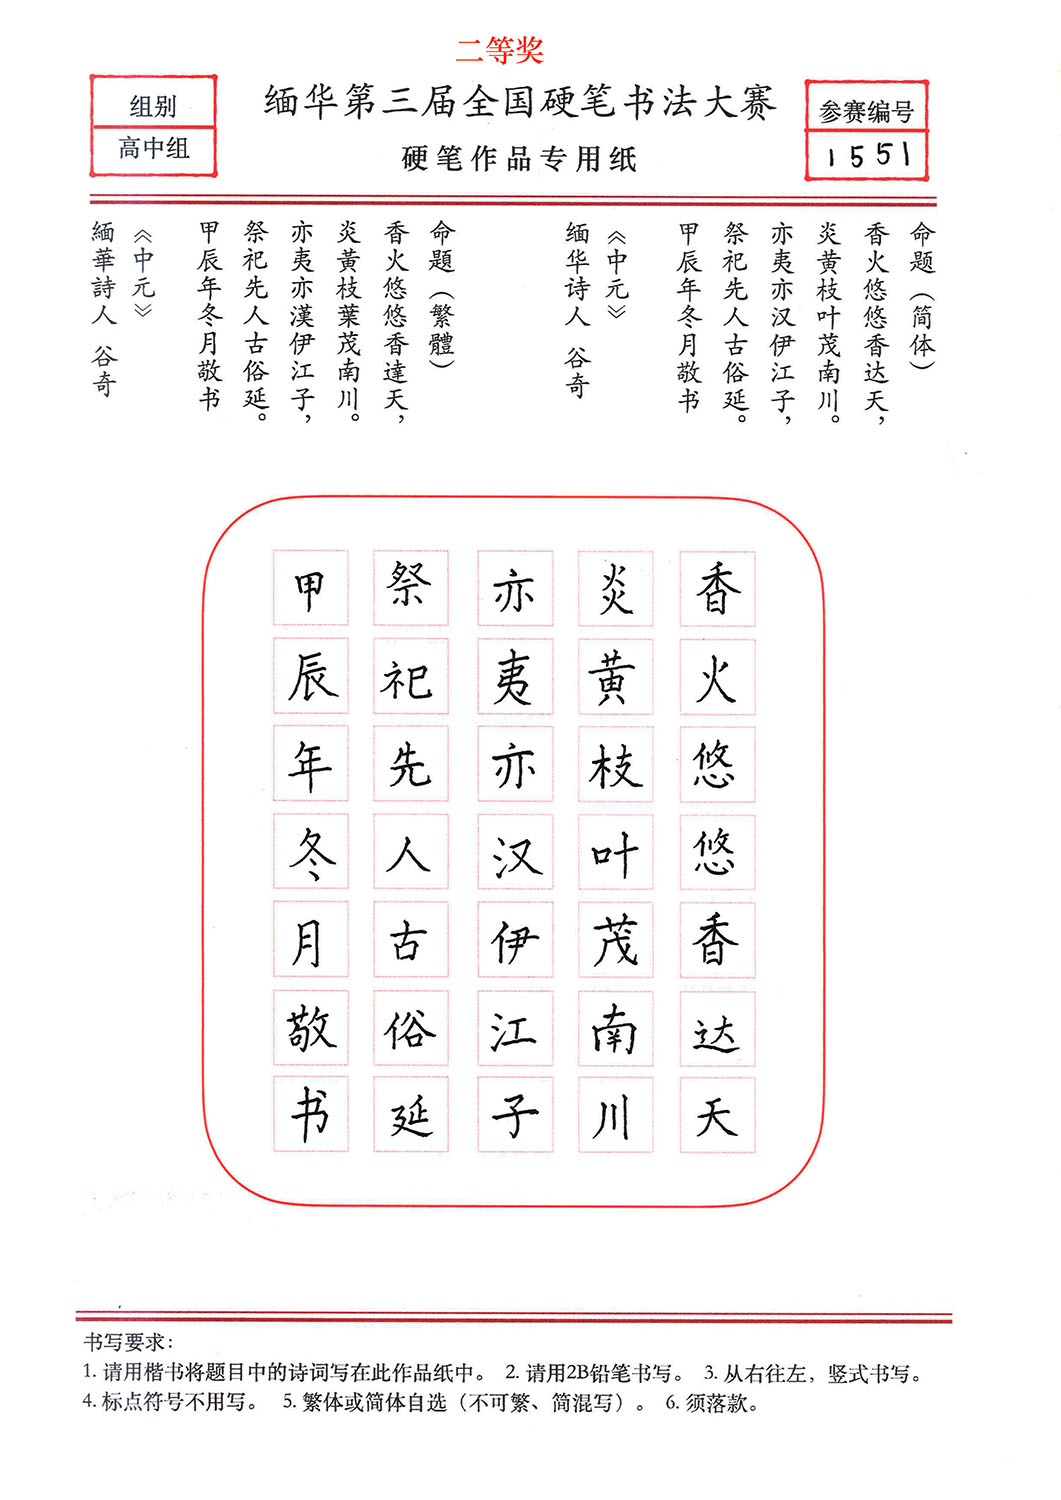 二等奖
组别
高中组
缅华第三届全国硬笔书法大赛
硬笔作品专用纸
参赛编号
1551
命题（简体）
香火悠悠香达天，
炎黄枝叶茂南川。
亦夷亦汉伊江子，
祭祀先人古俗延。
甲辰年冬月敬书
《中元》
缅华诗人 谷奇
命題（繁體）
香火悠悠香達天，
炎黃枝葉茂南川。
亦夷亦漢伊江子，
祭祀先人古俗延。
甲辰年冬月敬书
《中元》
緬華詩人 谷奇
香火悠悠香达天
炎黄枝叶茂南川
亦夷亦汉伊江子
祭祀先人古俗延
甲辰年冬月敬书
书写要求：
1. 请用楷书将题目中的诗词写在此作品纸中。 2. 请用2B铅笔书写。 3. 从右往左，竖式书写。
4. 标点符号不用写。 5. 繁体或简体自选（不可繁、简混写）。 6. 须落款。